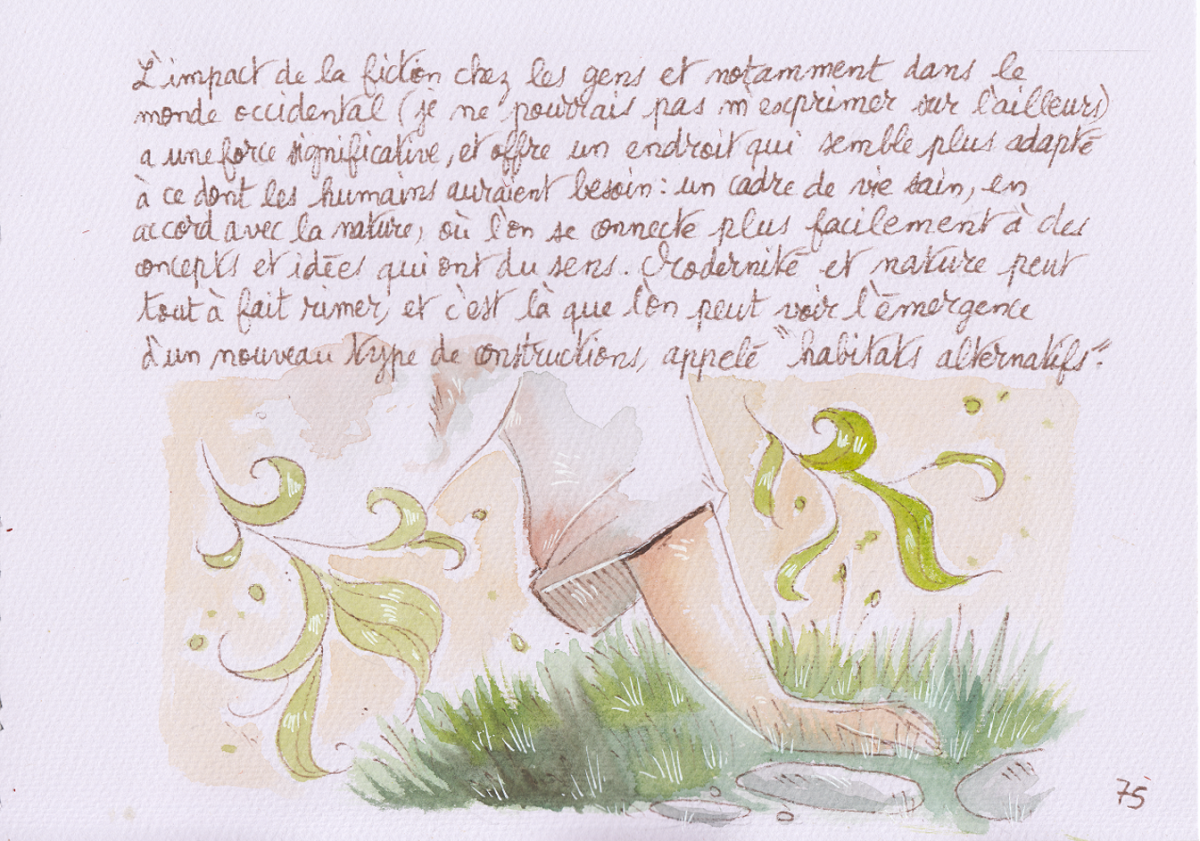 L'impact de la fiction chez les gens et notamment dans le
monde occidental (je ne pourrais pas m'exprimer sur l'ailleurs)
a une force significative, et offre un endroit qui semble plus adapté
à ce dont les humains auraient besoin : un cadre de vie sain, en
accord avec la nature, où l'on se connecte plus facilement à des
concepts et idées qui ont du sens. Modernité et nature peut
tout à fait rimer, et c'est là que l'on peut voir l'émergence
d'un nouveau type de constructions, appelé "habitats alternatifs".
75